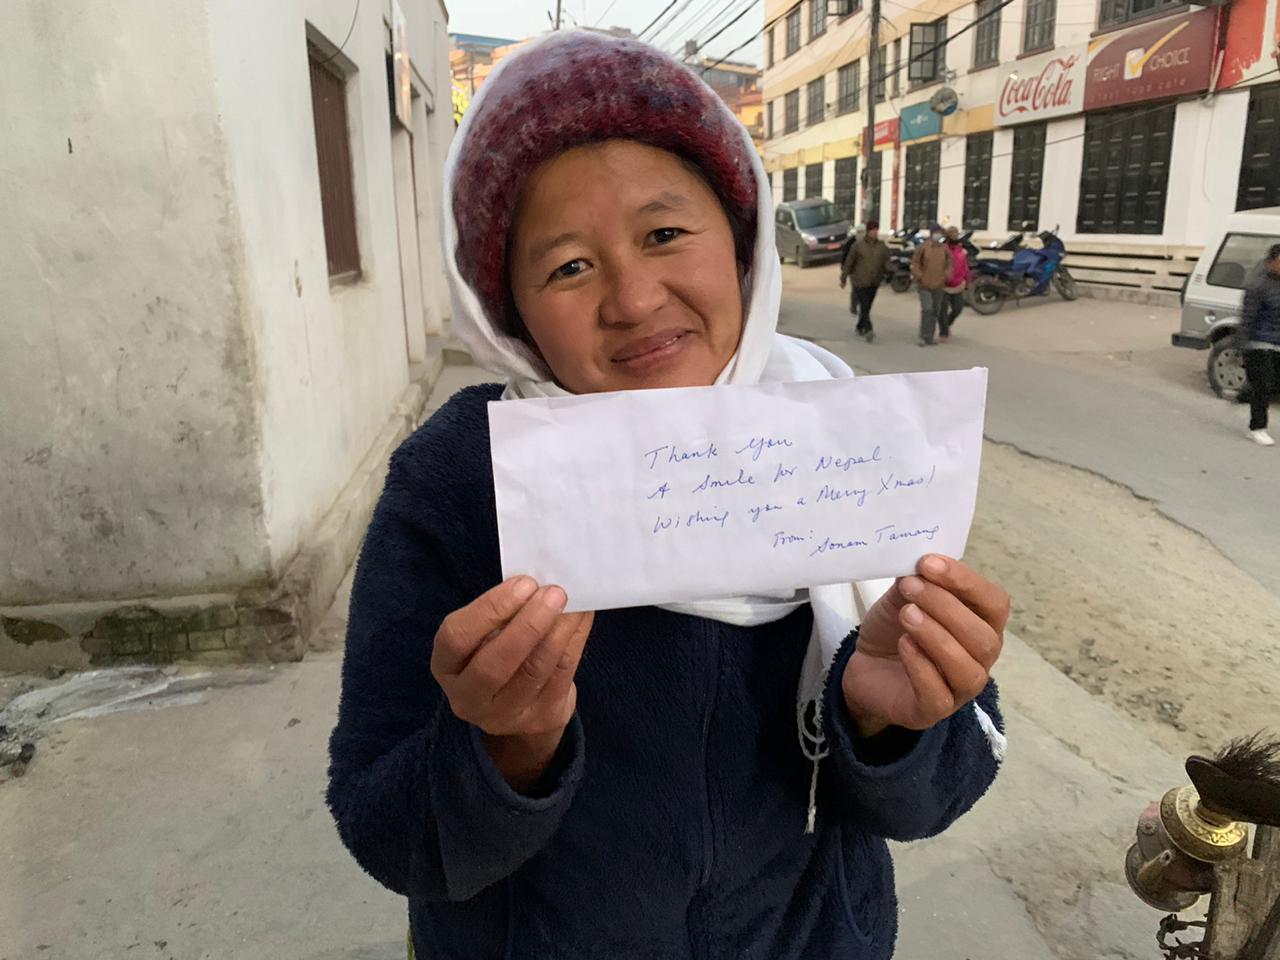 Coca-Cola
RIGHT CHOICE
fast food cafe
Thank You
A Smile for Nepal.
Wishing you a Merry Xmas!
From: Sonam Tamang